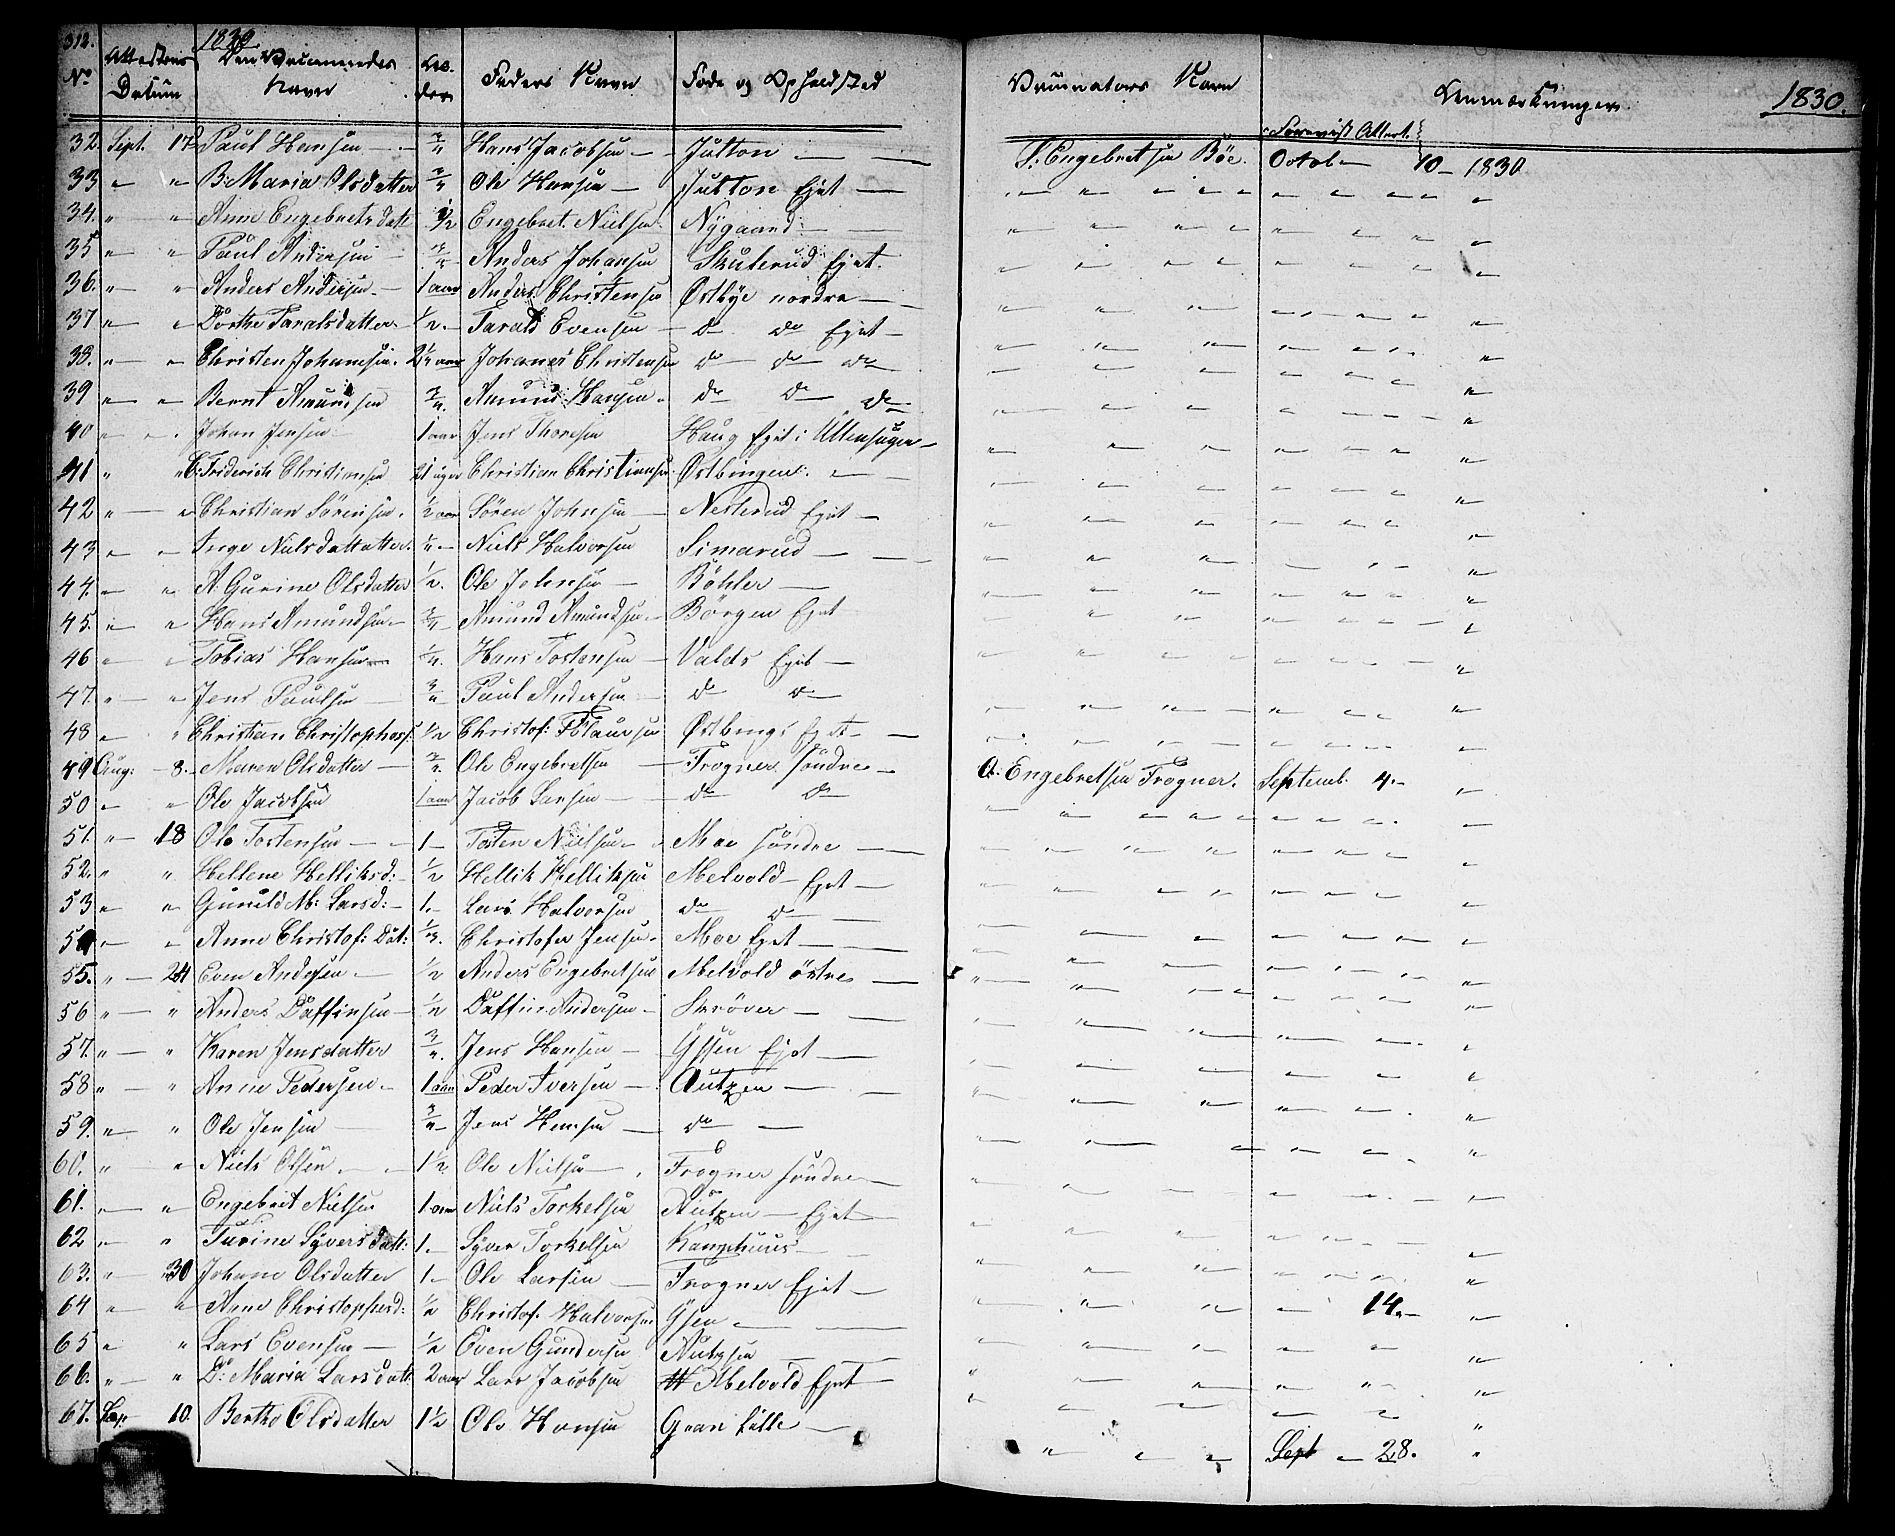 312. 1830. 1830.
No Attestens Datum Den Vaccineredes Navn Alder Faders Navn Føde og Opholdsted Vaccinators Navn Anmærkninger
Foreviist Attest.
32. Sept. 17 Paul Hansen — 3/4 Hans Jacobsen — Jutton — — T. Engebretsen Böe. Octob — 10 — 1830
33 " " B: Maria Olsdatter 3/4 Ole Hansen — Jutton Ejet —
34. " " Anne Engebretsdatt 1/2 Engebret Nielsen Nygaard —
35 " " Paul Andersen — 3/4 Anders Johansen Skuterud Ejet.
36. " " Anders Andersen — 1 aar Anders Christensen Østbye nordre —
37 " " Dorthe Taraldsdatter 1/2 — Tarald Evensen — do do Ejet —
38. " " Christen Johannesen. 2 1/2 aar Johanes Christensen do — do — do
39 " " Bernt Amundsen 3/4. Amund Hansen. do do do
40 " " Johan Jensen — 1 aar Jens Thoresen Haug Ejet i Ullensager —
41 " " C: Friderich Christiansen 21 uger Christian Christiansen Østbingen. —
42 " " Christian Sörensen. 1/2 aar Sören Johnsen — Nesterud Ejet —
43 " " Inge Nielsdattatter. 1/4 — Niels Halvorsen Simarud —
44. " " A: Gurine Olsdatter 1/2. Ole Johnsen — Böhler —
45. " " Hans Amundsen — 3/4 Amund Amundsen — Börgen Ejet
46 " " Tobias Hansen — 1/4. Hans Tostensen — Valds Ejet —
47. " " Jens Paulsen — 3/4 Paul Andersen — do do —
48 " " Christian Christophers: 1/2 Christof: Olaussen Østbings Ejet —
49 Aug: — 8. Maren Olsdatter — 3/4. Ole Engebretsen — Frogner Söndre — O. Engebretsen Frogner. Septemb. 4. —
50 " " Ole Jacobsen 1 aar Jacob Larsen — do do
51. " 18 Ole Tostensen — 1 — Tosten Nielsen — Moe söndre —
52. " " Hellene Helliksd: — 1/2 Hellik Helliksen Melvold — Ejet —
53 " " Gunild M: Larsd: — 1. — Lars Halvorsen do do —
54 " " Anne Christof: Dat: 1/3. Christofer Jensen. Moe Ejet —
55. " 24 Even Andersen — 1/2 Anders Engebretsen Melvold östre —
56 " " Anders Daffinsen — 1/2 Daffin Andersen — Skröver —
57. " " Karen Jensdatter 3/4. Jens Hansen — Yssen Ejet —
58 " " Anne Pedersen — 1 aar Peder Iversen — Autzen —
59. " " Ole Jensen — 3/4 Jens Hansen — do —
60. " " Niels Olsen — 1 1/2. Ole Nielsen — Frogner söndre —
61. " " Engebret Nielsen 1 aar Niels Torkelsen Autzen — Ejet —
62 " " Turine Syversdatt: 1. — Syver Torkelsen Kamphuus —
63. " 30 Johane Olsdatter 1 — Ole Larsen — Frogner Ejet —
64 " " Anne Christophersd: 1/2 Christof. Halvorsen Ysen — — 14. —
65 " " Lars Evensen — 1/2 Even Gundersen Autzen —
66. " " D: Maria Larsdatt. 2 aar Lars Jacobsen Melvold Ejet —
67. Sep. 10. Berthe Olsdatter 1 1/2 Ole Hansen Graan Lille — Sept — 28.